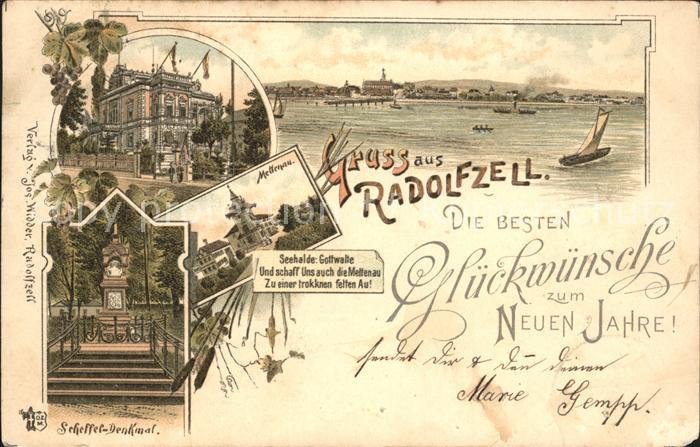 Gruss aus
RADOLFZELL.
DIE BESTEN
Glückwünsche
ZUM
NEUEN JAHRE!
Mettenau.
Seehalde: Gottwalte
Und schaff Uns auch die Mettenau
Zu einer trokknen fetten Au!
sendet Dir & den deinen
Marie Gempp.
Scheffel-Denkmal.
Verlag v. Jos. Widder, Radolfzell